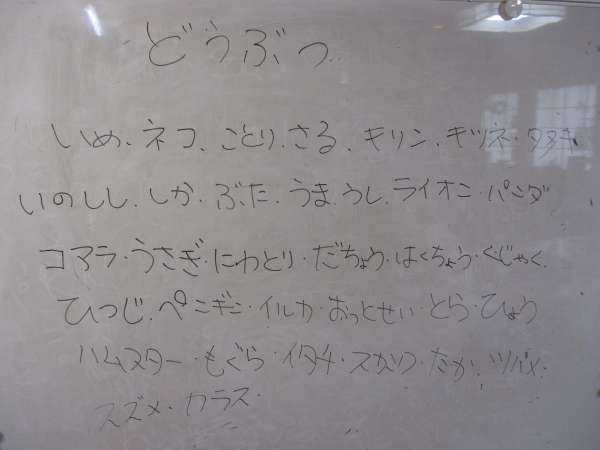 どうぶつ
いぬ、ネコ、ことり、さる、キリン、キツネ・タヌキ
いのしし、しか、ぶた、うま、うし、ライオン・パンダ
コアラ・うさぎ・にわとり・だちょう・はくちょう・くじゃく
ひつじ、ペンギン・イルカ・おっとせい・とら・ひょう
ハムスター・もぐら・イタチ・スカンク・たか、ツバメ・
スズメ・カラス・